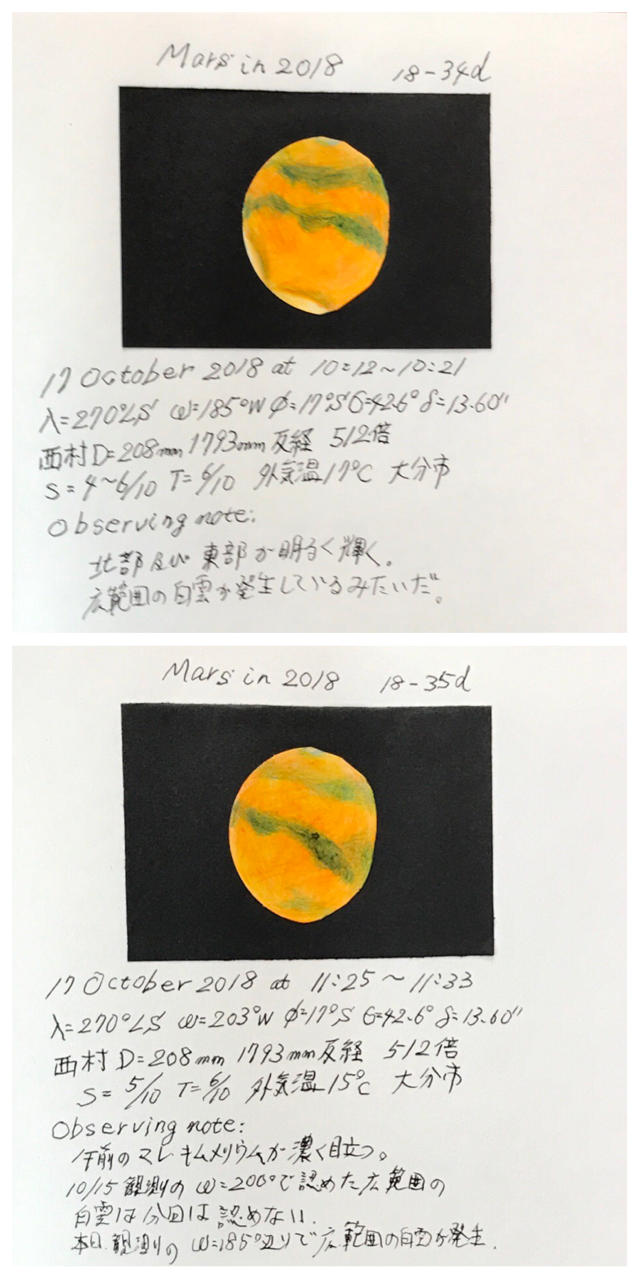 Mars in 2018 18-34d
17 October 2018 at 10:12～10:21
λ=270°LS ω=185°W φ=17°S G=42.6° δ=13.60"
西村D=208mm 1793mm反経 512倍
S=4～6/10 T=6/10 外気温17℃ 大分市
Observing note:
北部及び東部が明るく輝く。
広範囲の白雲が発生しているみたいだ。
Mars in 2018 18-35d
17 October 2018 at 11:25～11:33
λ=270°LS ω=203°W φ=17°S G=42.6° δ=13.60"
西村 D=208mm 1793mm反経 512倍
S=5/10 T=6/10 外気温15℃ 大分市
Observing note:
午前のマレキムメリウムが濃く目立つ。
10/15観測のω=200°で認めた広範囲の
白雲は分回は認めない.
本日観測のω=185°辺りで広範囲の白雲が発生.